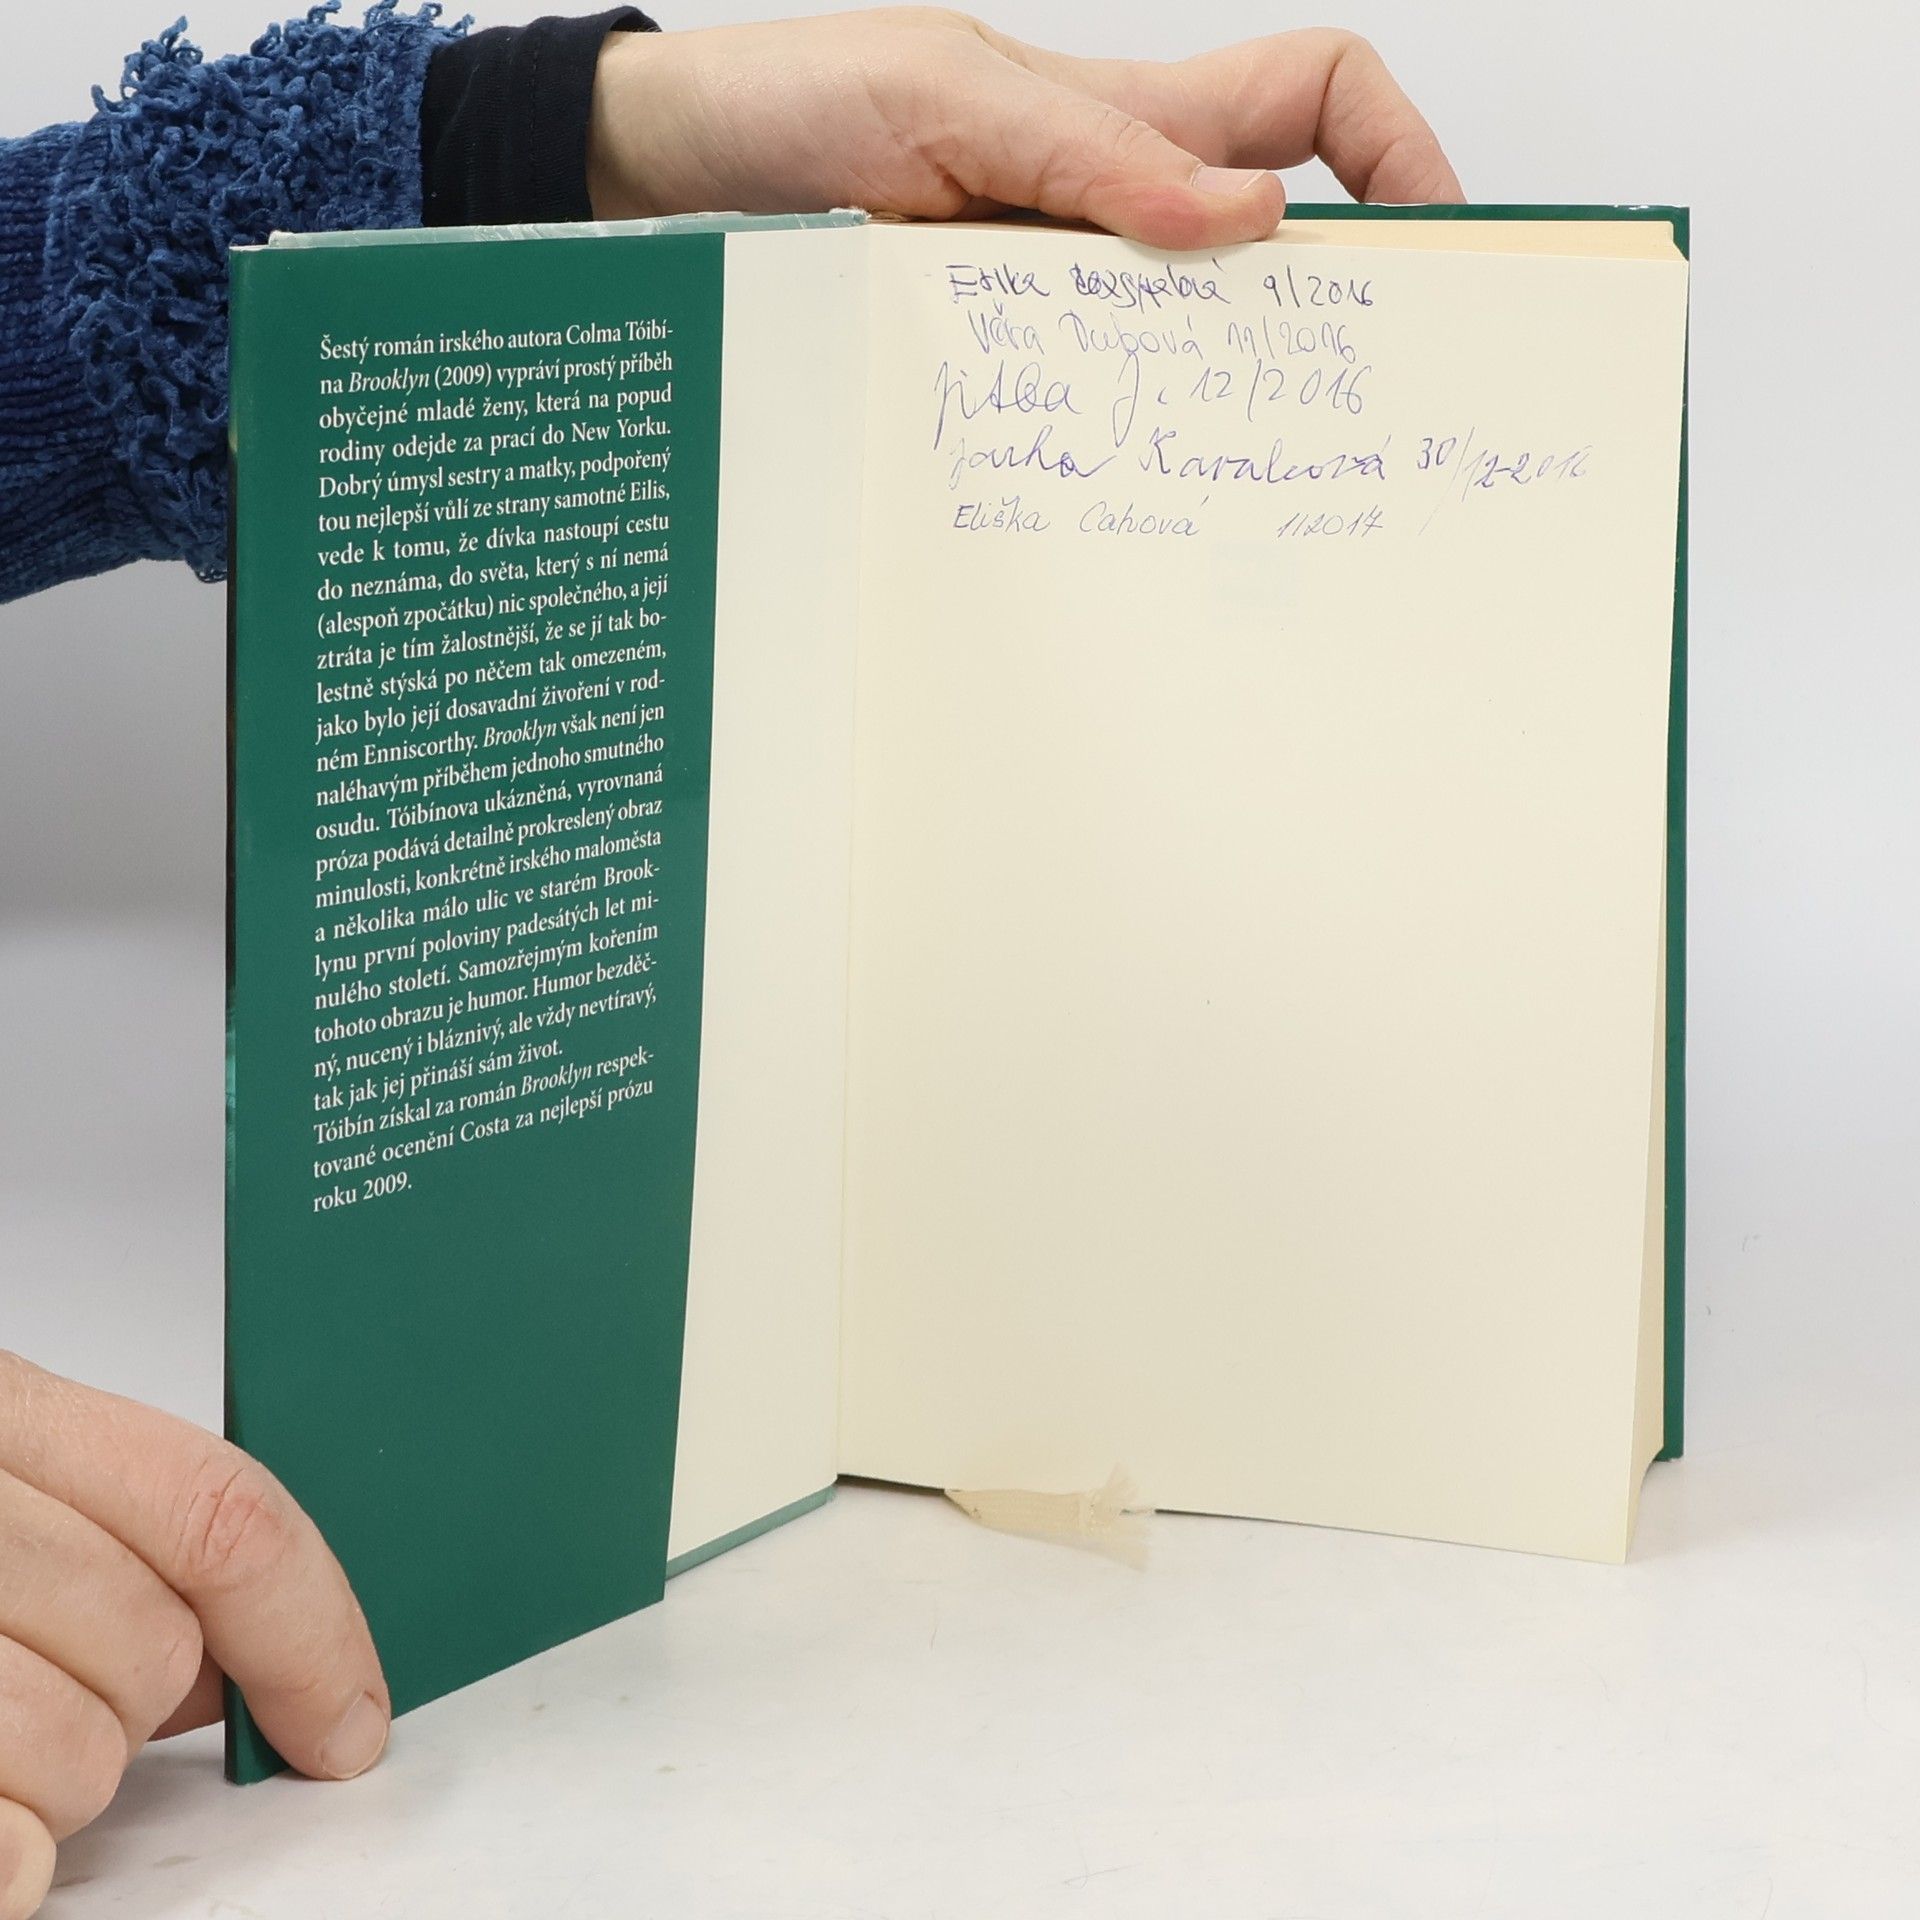 Šestý román irského autora Colma Tóibí-
na Brooklyn (2009) vypráví prostý příběh
obyčejné mladé ženy, která na popud
rodiny odejde za prací do New Yorku.
Dobrý úmysl sestry a matky, podpořený
tou nejlepší vůlí ze strany samotné Eilis,
vede k tomu, že dívka nastoupí cestu
do neznáma, do světa, který s ní nemá
(alespoň zpočátku) nic společného, a její
ztráta je tím žalostnější, že se jí tak bo-
lestně stýská po něčem tak omezeném,
jako bylo její dosavadní živoření v rod-
ném Enniscorthy. Brooklyn však není jen
naléhavým příběhem jednoho smutného
osudu. Tóibínova ukázněná, vyrovnaná
próza podává detailně prokreslený obraz
minulosti, konkrétně irského maloměsta
a několika málo ulic ve starém Brook-
lynu první poloviny padesátých let mi-
nulého století. Samozřejmým kořením
tohoto obrazu je humor. Humor bezděč-
ný, nucený i bláznivý, ale vždy nevtíravý,
tak jak jej přináší sám život.
Tóibín získal za román Brooklyn respek-
tované ocenění Costa za nejlepší prózu
roku 2009.
Erika 9/2016
Věra Dubová 11/2016
Jitka J. 12/2016
Jarka 30/12-2016
Eliška Cahová 1/2017